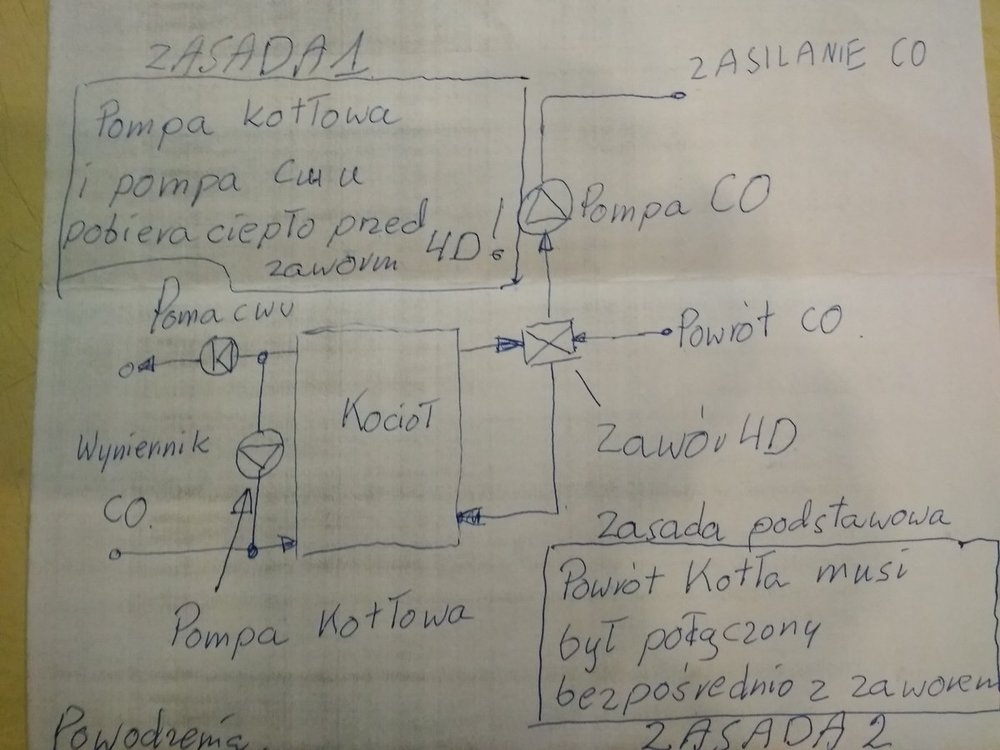 ZASADA 1
Pompa kotłowa
i pompa cwu
pobiera ciepło przed
zaworm 4D!
ZASILANIE CO
Pompa CO
Poma cwu
Powrót CO.
Kocioł
Zawór 4D
Wymiennik
CO.
Pompa Kotłowa
Zasada podstawowa
Powrót Kotła musi
był połączony
bezpośrednio z zaworem
ZASADA 2
Powodzenia.